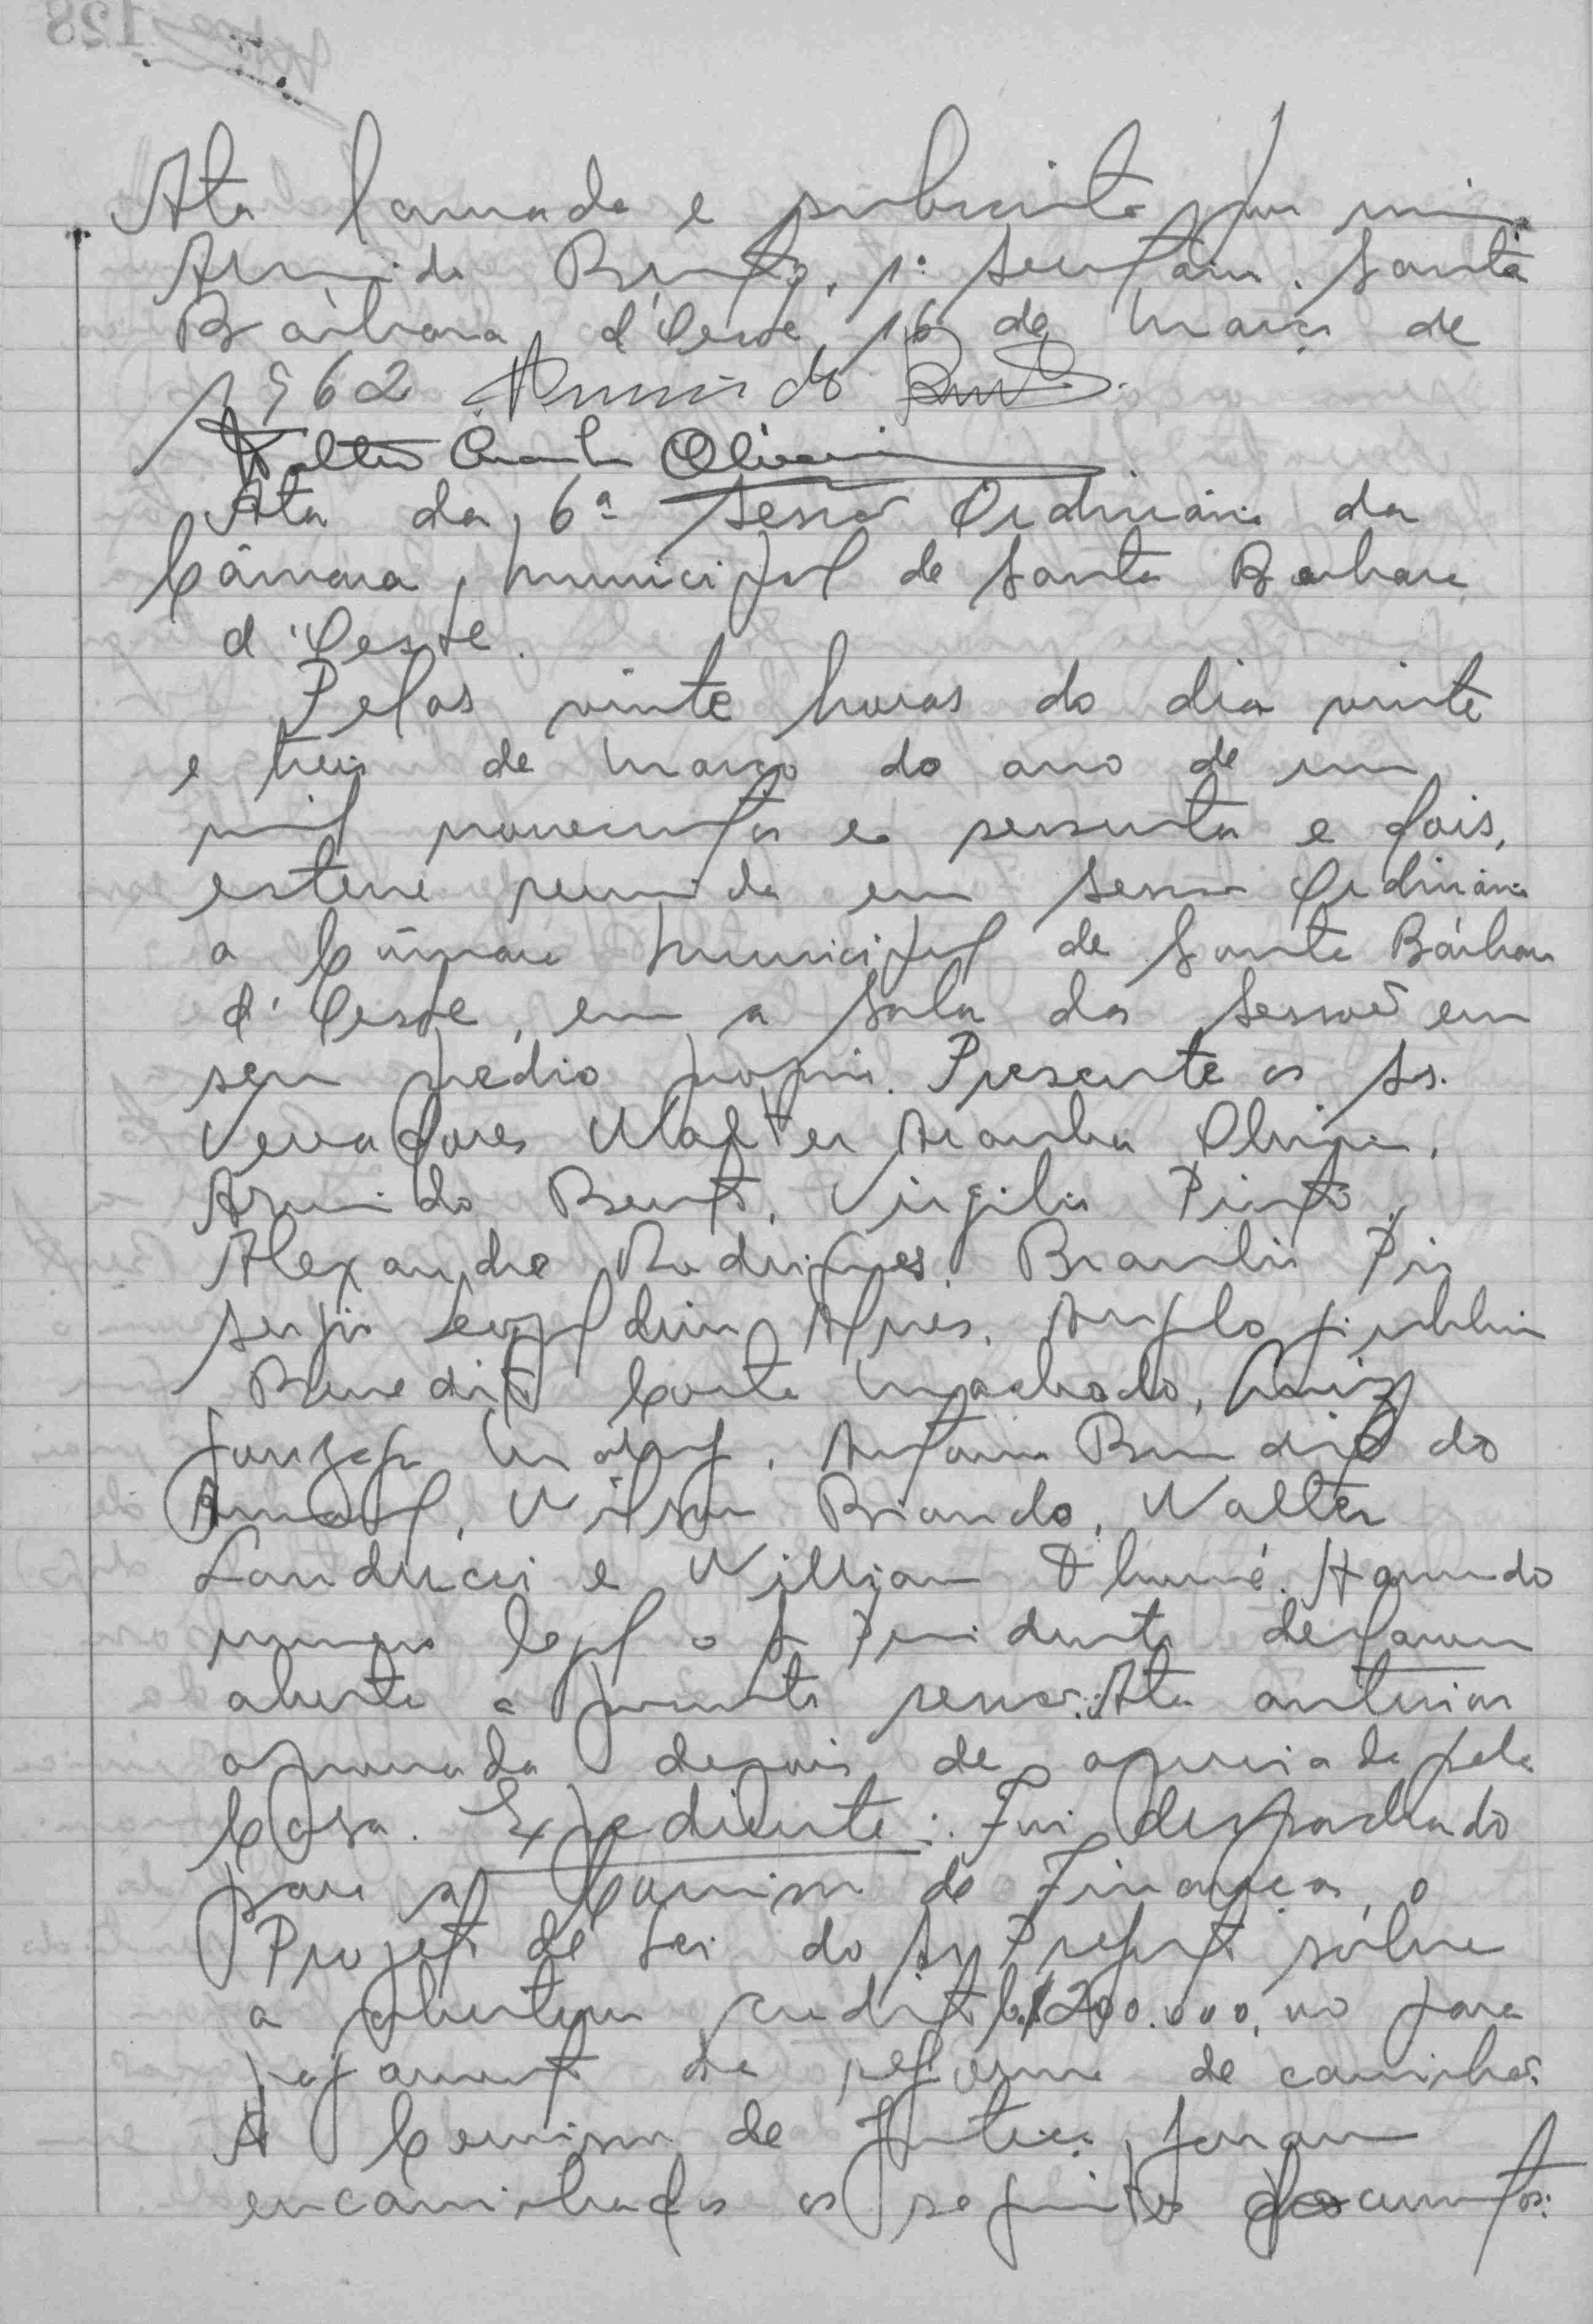 Ata lavrada e subscrita por mim
Armindo Bento, 1º Secretário. Santa
Bárbara d'Oeste, 16 de março de
1962 Armindo Bento
Walter Oliveira
Ata da 6ª sessão Ordinária da
Câmara Municipal de Santa Barbara
d'Oeste.
Pelas vinte horas do dia vinte
e treis de março do ano de um
mil novecentos e sessenta e dois,
esteve reunida em sessão Ordinária
a Câmara Municipal de Santa Bárbara
d'Oeste, em a sala das sessões em
seu prédio proprio. Presente os srs.
Vereadores Walter Aranha Oliveira,
Armindo Bento, Virgilio Pinto,
Alexandre Rodrigues, Braulio Pio
Sergio Leopoldino Alves, Angelo Giubbina
Benedito Costa Machado, Luiz
Antonio Benedito do
Amaral, Wilson Biando, Walter
Landucci e Willian Thomé. Havendo
numero legal o sr Presidente declarou
aberta a presente sessão. Ata anterior
aprovada depois de apreciada pela
Casa. Expediente: Foi despachado
para a Comissão de Finanças, o
Projeto de Lei do sr Prefeito sôbre
a abertura credito 200.000,00 para
pagamento da reforma de caminhão.
A Comissão de Justiça foram
encaminhados os seguintes documentos: